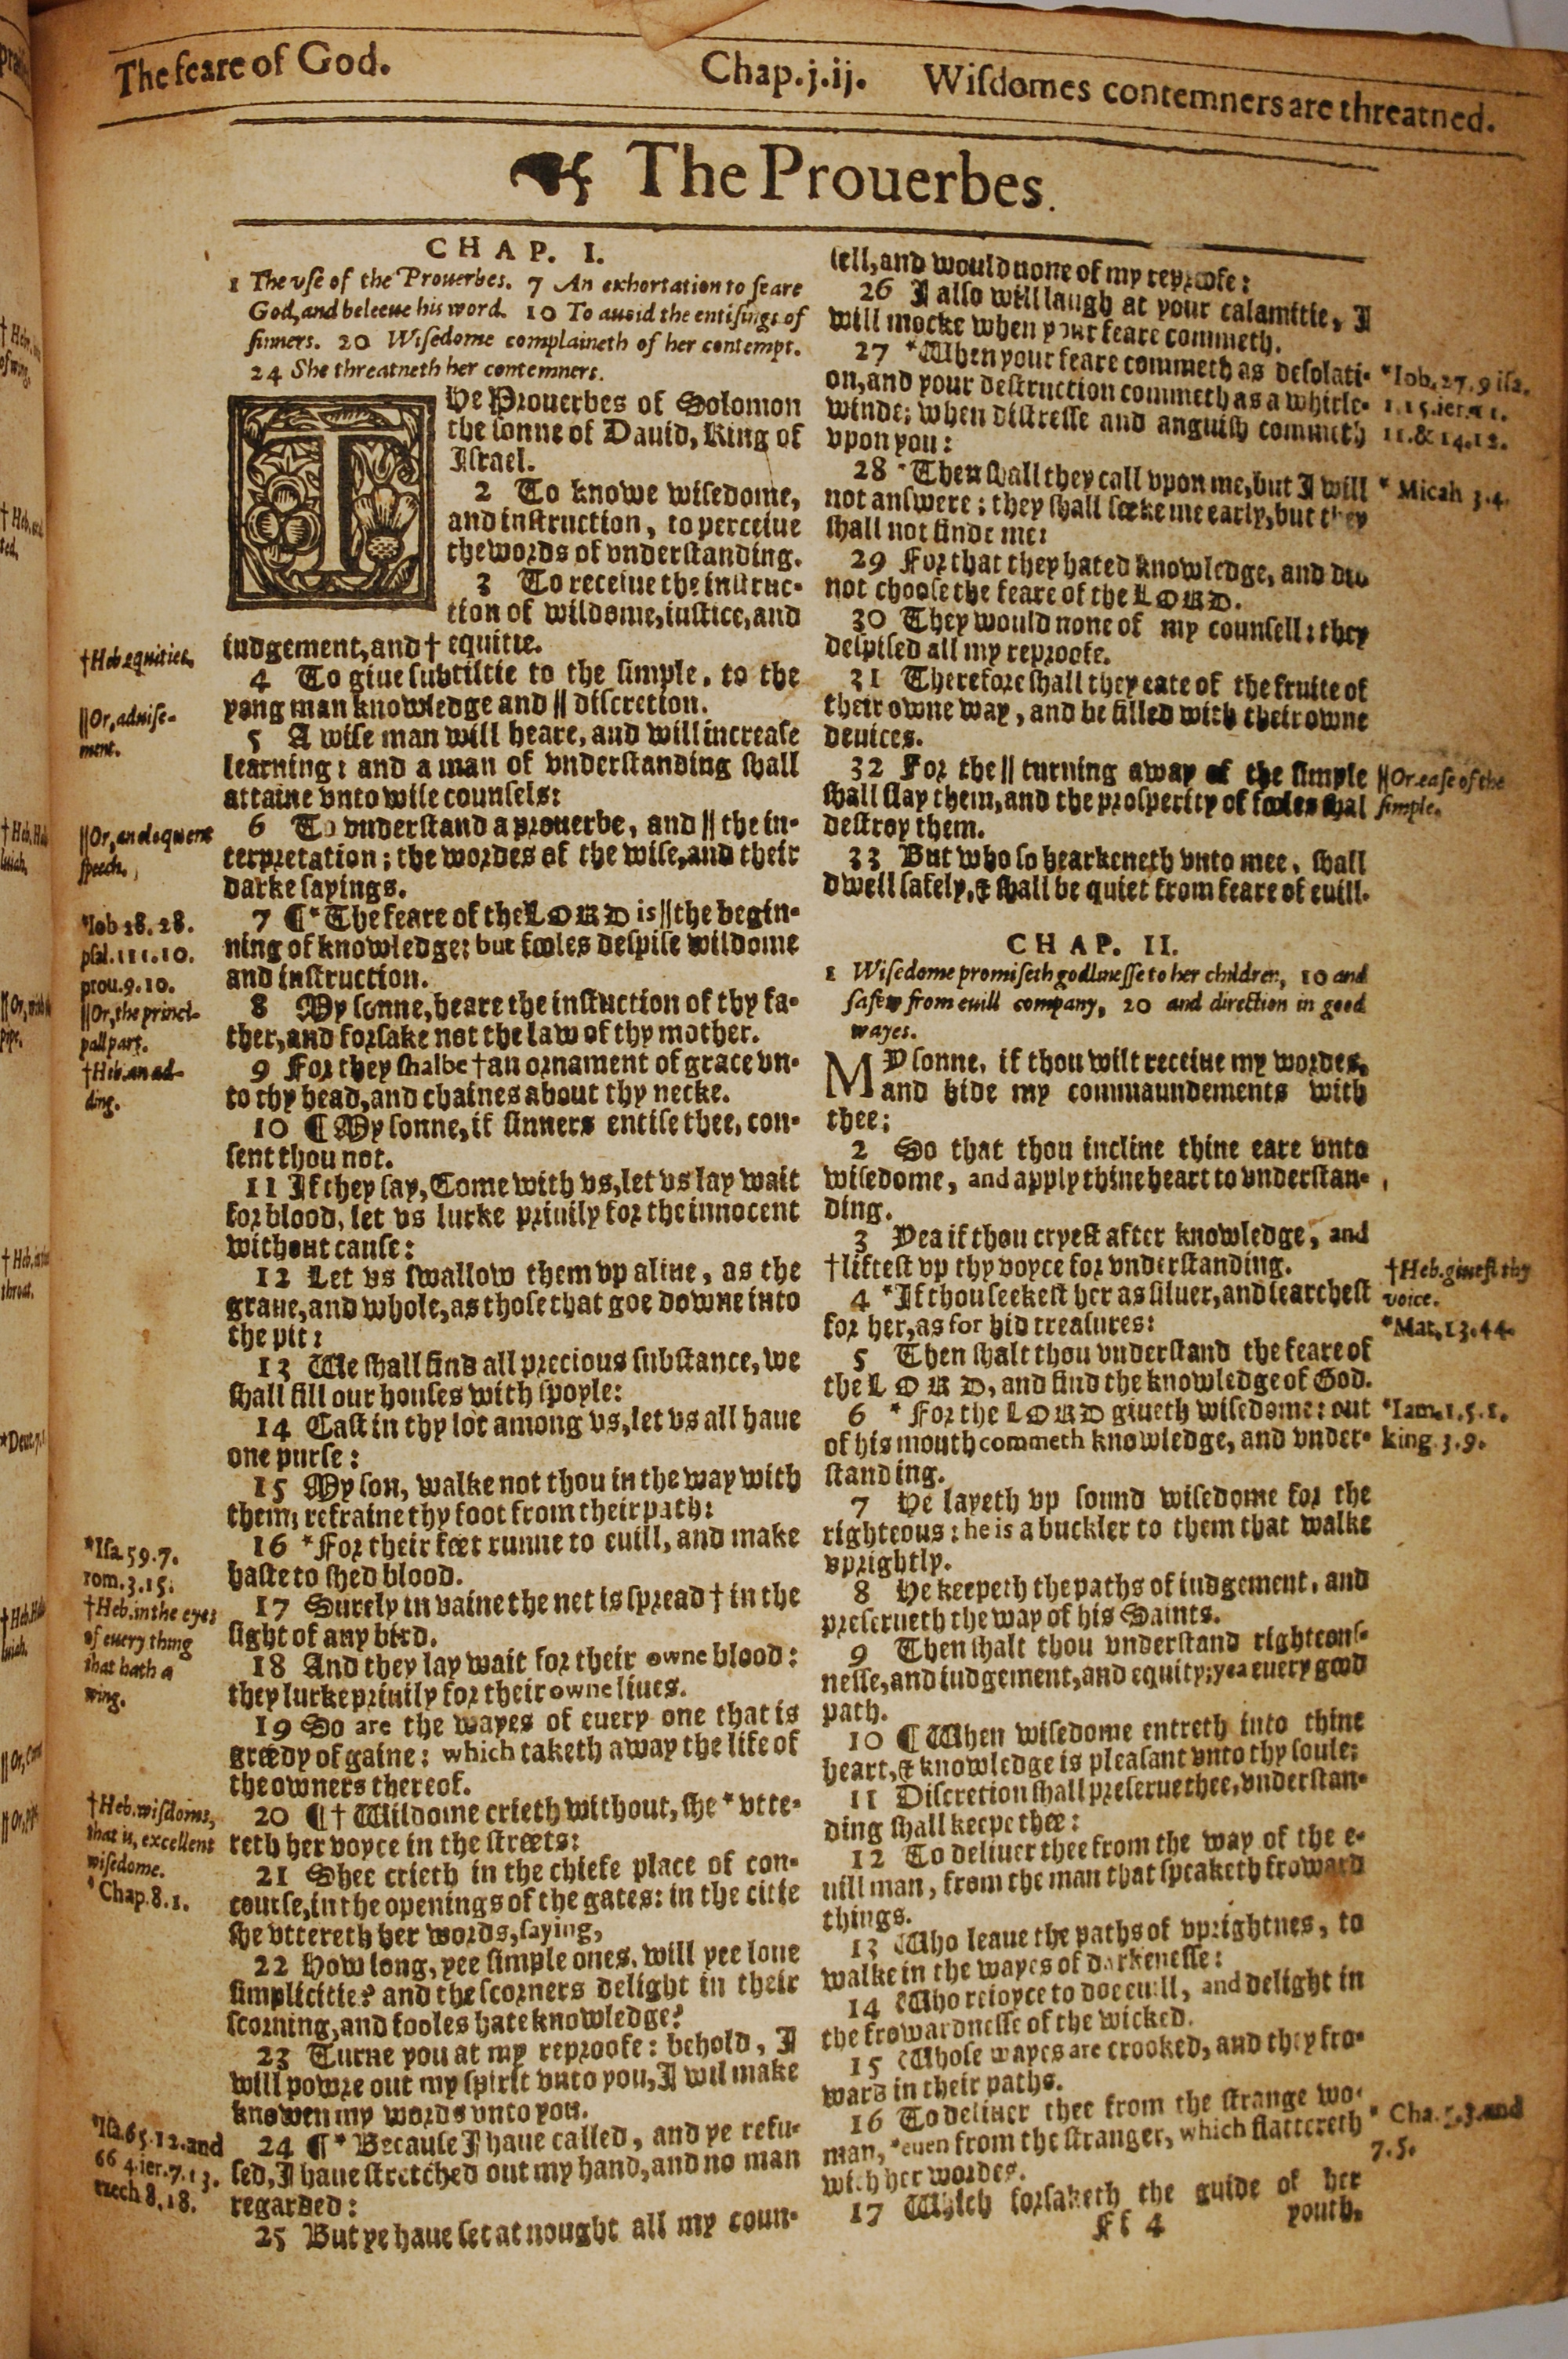 The feare of God.
Chap.j.ij.
Wiſdomes contemners are threatned.
The Prouerbes.
CHAP. I.
1 The vſe of the Prouerbes. 7 An exhortation to feare
God, and beleeue his word. 10 To auoid the entiſings of
ſinners. 20 Wiſedome complaineth of her contempt.
24 She threatneth her contemners.
The Prouerbes of Solomon
the ſonne of Dauid, King of
Iſrael.
2 To knowe wiſedome,
and inſtruction, to perceiue
the words of vnderſtanding.
3 To receiue the inſtruc-
tion of wiſdome, iuſtice, and
iudgement, and † equitie.
4 To giue ſubtiltie to the ſimple, to the
yong man knowledge and || diſcretion.
5 A wiſe man will heare, and will increaſe
learning: and a man of vnderſtanding ſhall
attaine vnto wiſe counſels:
6 To vnderſtand a prouerbe, and || the in-
terpretation; the wordes of the wiſe, and their
darke ſayings.
7 ¶ * The feare of the LORD is || the begin-
ning of knowledge: but fooles deſpiſe wiſdome
and inſtruction.
8 My ſonne, heare the inſtuction of thy fa-
ther, and forſake not the law of thy mother.
9 For they ſhalbe † an ornament of grace vn-
to thy head, and chaines about thy necke.
10 ¶ My ſonne, if ſinners entiſe thee, con-
ſent thou not.
11 If they ſay, Come with vs, let vs lay wait
for blood, let vs lurke priuily for the innocent
without cauſe:
12 Let vs ſwallow them vp aliue, as the
graue, and whole, as thoſe that goe downe into
the pit:
13 We ſhall find all precious ſubſtance, we
ſhall fill our houſes with ſpoyle:
14 Caſt in thy lot among vs, let vs all haue
one purſe:
15 My ſon, walke not thou in the way with
them; refraine thy foot from their path:
16 * For their feet runne to euill, and make
haſte to ſhed blood.
17 Surely in vaine the net is ſpread † in the
ſight of any bird.
18 And they lay wait for their owne blood:
they lurke priuily for their owne liues.
19 So are the wayes of euery one that is
greedy of gaine: which taketh away the life of
the owners thereof.
20 ¶ † Wiſdome crieth without, ſhe * vtte-
reth her voyce in the ſtreets:
21 Shee crieth in the chiefe place of con-
courſe, in the openings of the gates: in the citie
ſhe vttereth her words, ſaying,
22 How long, yee ſimple ones, will yee loue
ſimplicitie? and the ſcorners delight in their
ſcorning, and fooles hate knowledge?
23 Turne you at my reproofe: behold, I
will powre out my ſpirit vnto you, I wil make
knowen my words vnto you.
24 ¶ * Becauſe I haue called, and ye refu-
ſed, I haue ſtretched out my hand, and no man
regarded:
25 But ye haue ſet at nought all my coun-
† Heb. equities.
|| Or, aduiſe-
ment.
|| Or, an eloquent
ſpeech.
*Iob 28. 28.
pſal. 111. 10.
prou. 9. 10.
|| Or, the princi-
pall part.
† Heb. an ad-
ding.
*Iſa. 59. 7.
rom. 3. 15.
† Heb. in the eyes
of euery thing
that hath a
wing.
† Heb. wiſdoms,
that is, excellent
wiſedome.
* Chap. 8. 1.
*Iſa. 65. 12. and
66 4. ier. 7. 13.
ezech 8. 18.
ſell, and would none of my reproofe:
26 I alſo will laugh at your calamitie, I
will mocke when your feare commeth.
27 * When your feare commeth as deſolati-
on, and your deſtruction commeth as a whirle-
winde; when diſtreſſe and anguiſh commeth
vpon you:
28 * Then ſhall they call vpon me, but I will
not anſwere; they ſhall ſeeke me early, but they
ſhall not finde me:
29 For that they hated knowledge, and did
not chooſe the feare of the LORD.
30 They would none of my counſell: they
deſpiſed all my reproofe.
31 Therefore ſhall they eate of the fruite of
their owne way, and be filled with their owne
deuices.
32 For the || turning away of the ſimple
ſhall ſlay them, and the proſperity of fooles ſhal
deſtroy them.
33 But who ſo hearkeneth vnto mee, ſhall
dwell ſafely, & ſhall be quiet from feare of euill.
CHAP. II.
1 Wiſedome promiſeth godlineſſe to her children, 10 and
ſafety from euill company, 20 and direction in good
wayes.
MY ſonne, if thou wilt receiue my wordes,
and hide my commaundements with
thee;
2 So that thou incline thine eare vnto
wiſedome, and apply thine heart to vnderſtan-
ding.
3 Yea if thou cryeſt after knowledge, and
† lifteſt vp thy voyce for vnderſtanding.
4 * If thou ſeekeſt her as ſiluer, and ſearcheſt
for her, as for hid treaſures:
5 Then ſhalt thou vnderſtand the feare of
the LORD, and find the knowledge of God.
6 * For the LORD giueth wiſedome: out
of his mouth commeth knowledge, and vnder-
ſtanding.
7 He layeth vp ſound wiſedome for the
righteous: he is a buckler to them that walke
vprightly.
8 He keepeth the paths of iudgement, and
preſerueth the way of his Saints.
9 Then ſhalt thou vnderſtand righteouſ-
neſſe, and iudgement, and equity; yea euery good
path.
10 ¶ When wiſedome entreth into thine
heart, & knowledge is pleaſant vnto thy ſoule;
11 Diſcretion ſhall preſerue thee, vnderſtan-
ding ſhall keepe thee:
12 To deliuer thee from the way of the e-
uill man, from the man that ſpeaketh froward
things.
13 Who leaue the paths of vprightnes, to
walke in the wayes of darkeneſſe:
14 Who reioyce to doe euill, and delight in
the frowardneſſe of the wicked.
15 Whoſe wayes are crooked, and they fro-
ward in their paths.
16 To deliuer thee from the ſtrange wo-
man, * euen from the ſtranger, which flattereth
with her wordes.
17 Which forſaketh the guide of her
Ff 4
youth,
*Iob. 27. 9 iſa.
1. 15. ier. 11.
11. & 14. 12.
* Micah 3. 4.
|| Or, eaſe of the
ſimple.
† Heb. giueſt thy
voice.
*Mat. 13. 44.
*Iam. 1. 5. 1.
king. 3. 9.
* Cha. 5. 3. and
7. 5.